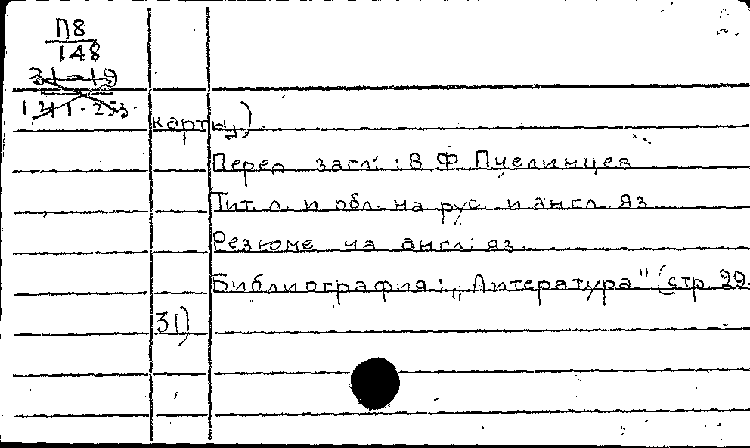 П8
148
31-19
карты)
Перед загл.: В. Ф. Пчелинцев
Тит. л. и обл. на рус. и англ. яз.
Резюме на англ. яз.
Библиография: „Литература" (стр. 29-
31)